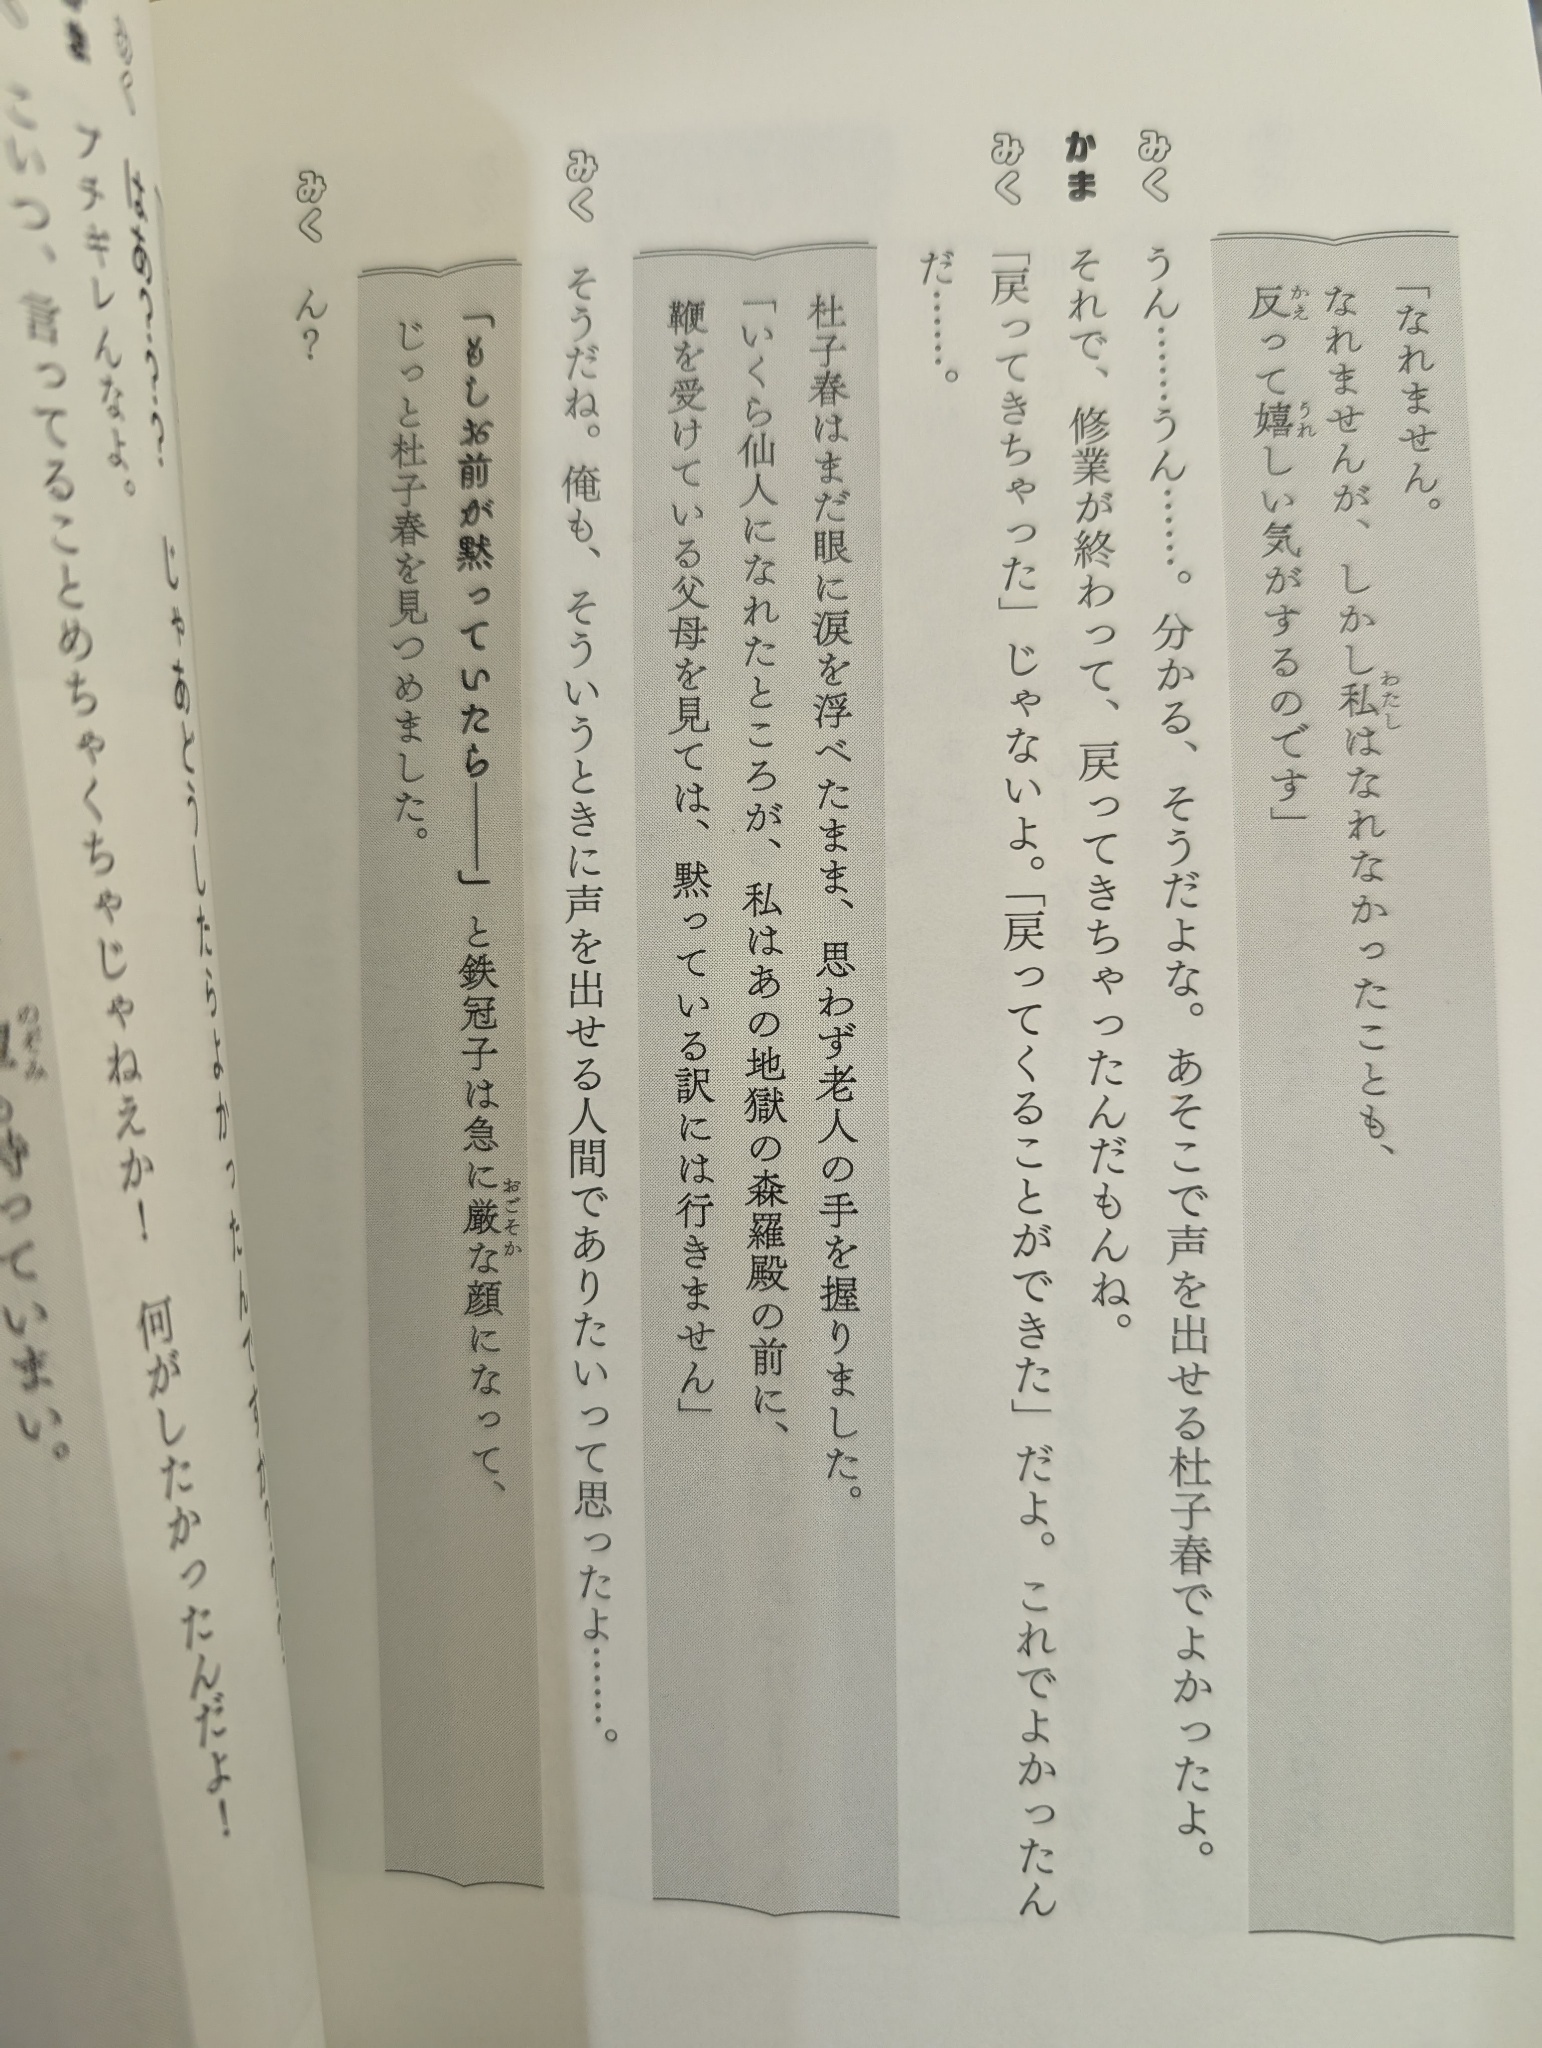 「なれません。
なれませんが、しかし私はなれなかったことも、
反って嬉しい気がするのです」
みく うん……うん……。分かる、そうだよな。あそこで声を出せる杜子春でよかったよ。
かま それで、修業が終わって、戻ってきちゃったんだもんね。
みく 「戻ってきちゃった」じゃないよ。「戻ってくることができた」だよ。これでよかったん
だ……。
杜子春はまだ眼に涙を浮べたまま、思わず老人の手を握りました。
「いくら仙人になれたところが、私はあの地獄の森羅殿の前に、
鞭を受けている父母を見ては、黙っている訳には行きません」
みく そうだね。俺も、そういうときに声を出せる人間でありたいって思ったよ……。
「もしお前が黙っていたら――」と鉄冠子は急に厳な顔になって、
じっと杜子春を見つめました。
みく ん？
はあ？？？？ じゃあどうしたらよかったんですか
ブチギレんなよ。
こいつ、言ってることめちゃくちゃじゃねえか！ 何がしたかったんだよ！
っていまい。